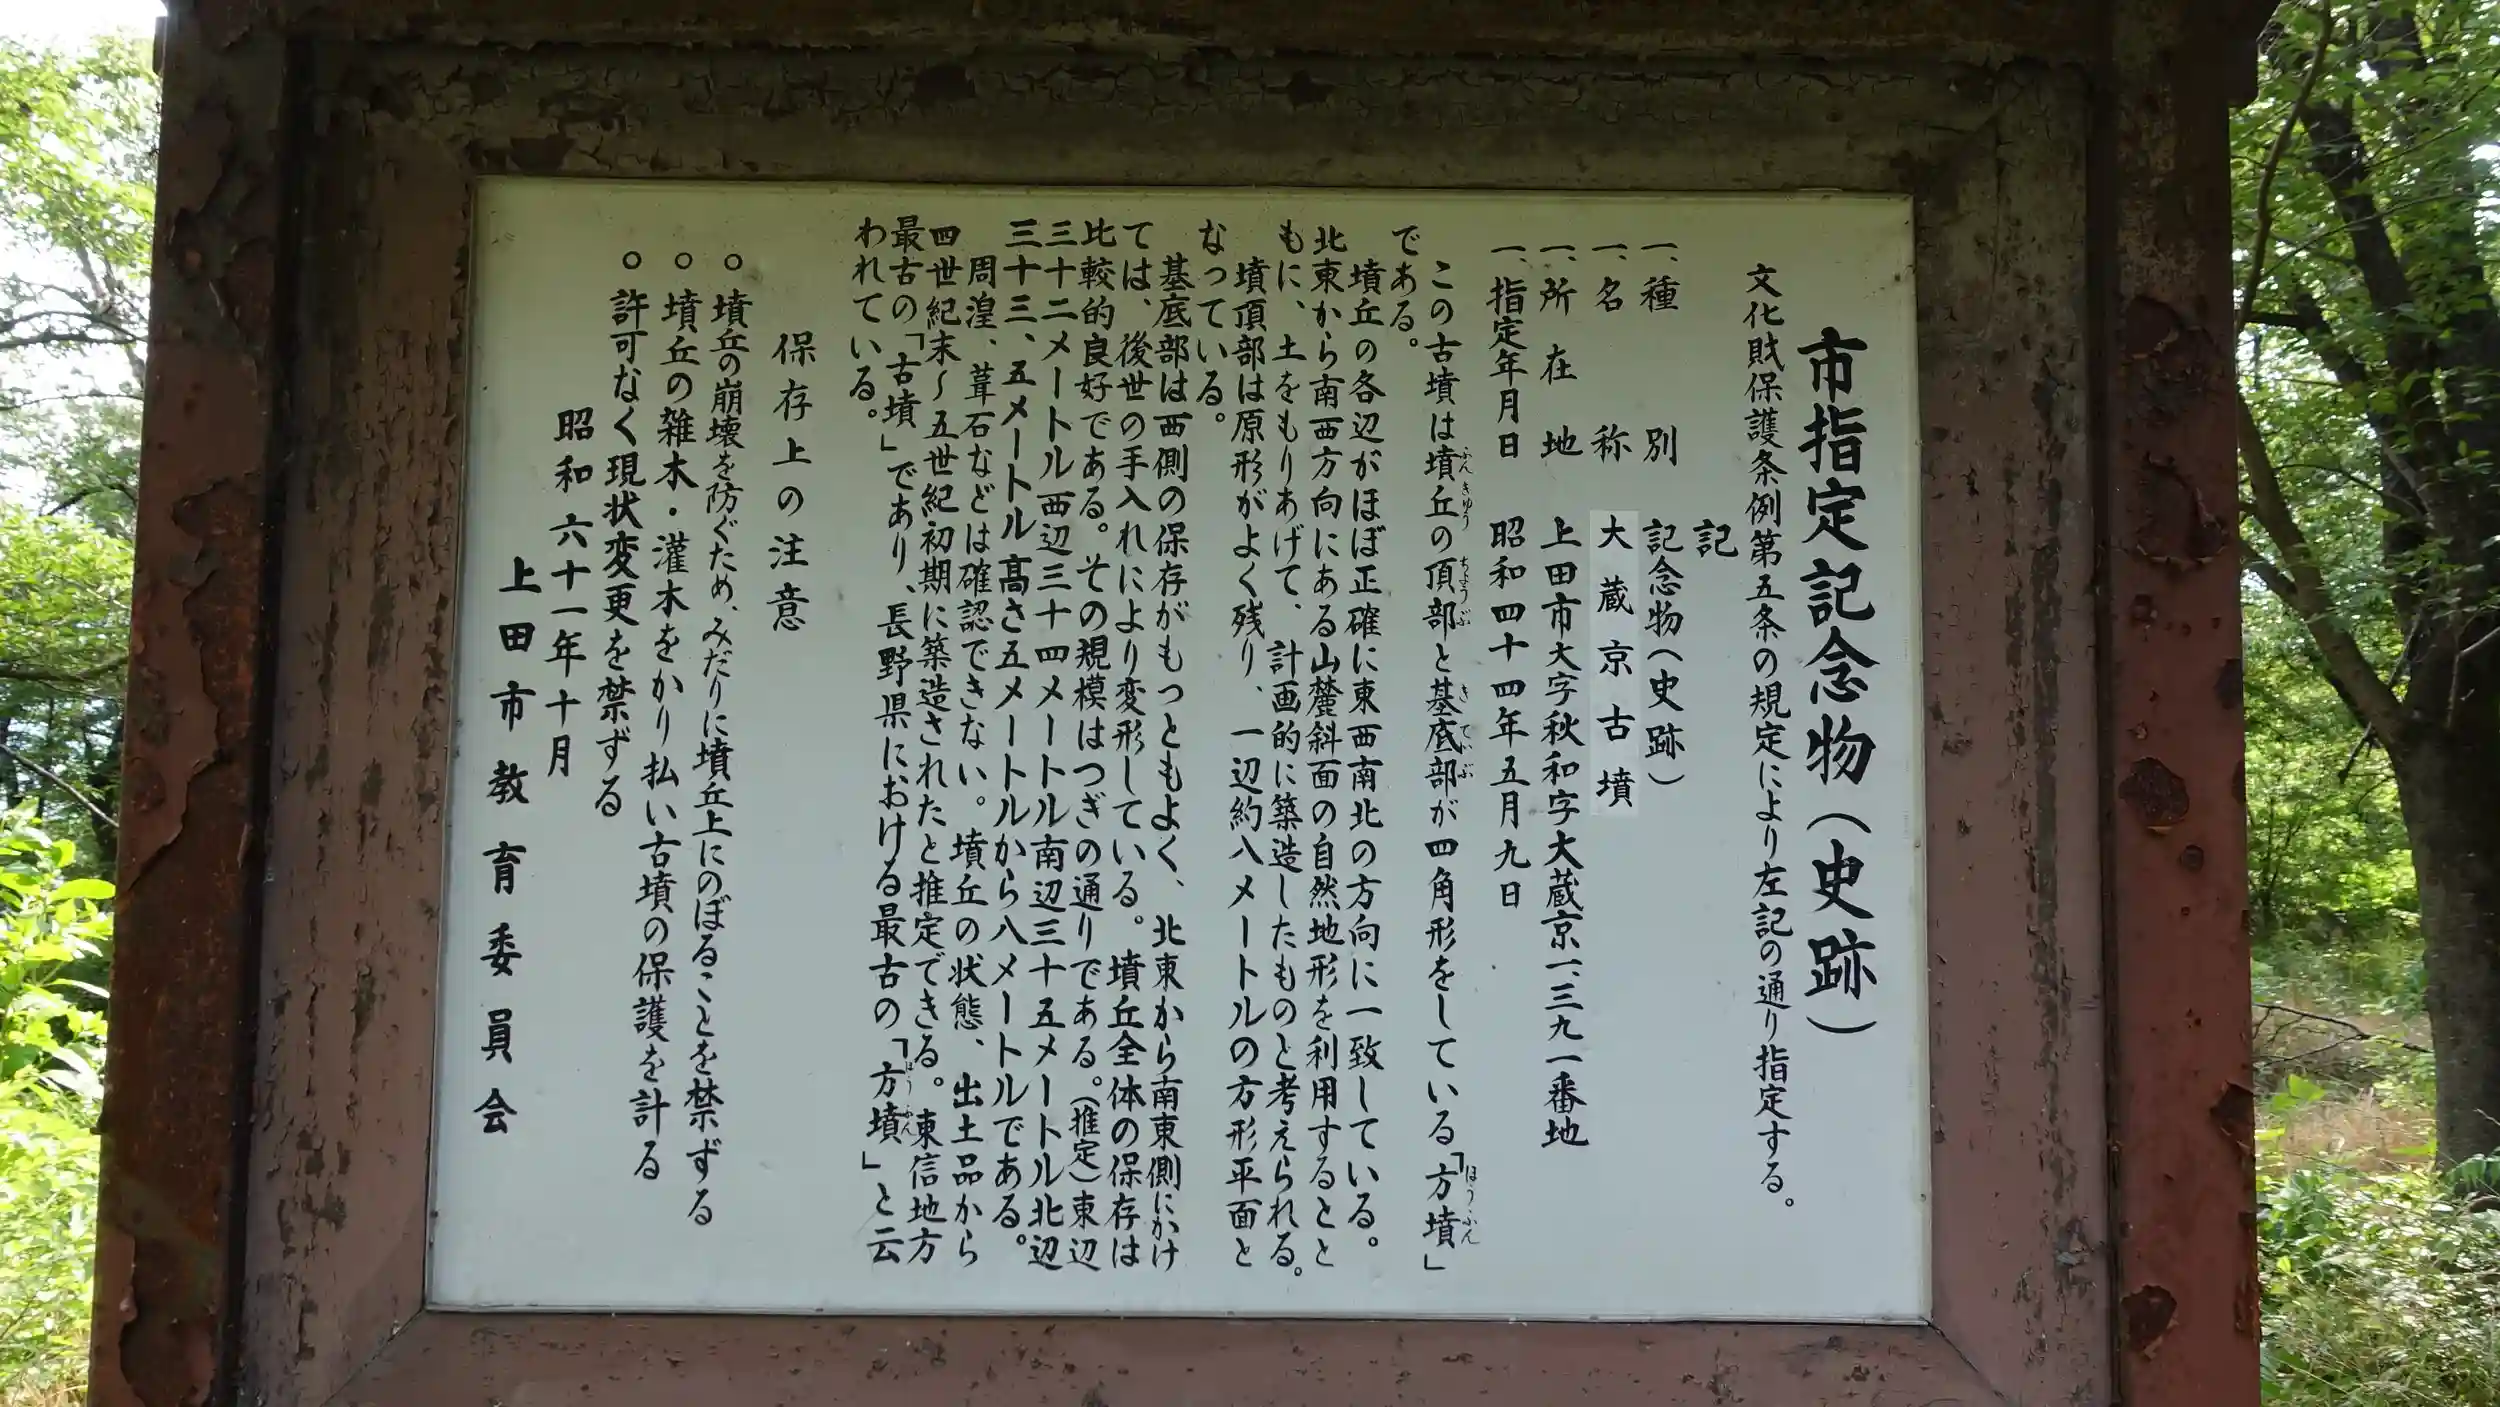 市指定記念物（史跡）
文化財保護条例第五条の規定により左記の通り指定する。
記
一、種別　記念物（史跡）
一、名称　大蔵京古墳
一、所在地　上田市大字秋和字大蔵京一、三九一番地
一、指定年月日　昭和四十四年五月九日
この古墳は墳丘の頂部と基底部が四角形をしている「方墳」
である。
墳丘の各辺がほぼ正確に東西南北の方向に一致している。
北東から南西方向にある山麓斜面の自然地形を利用するとと
もに、土をもりあげて、計画的に築造したものと考えられる。
墳頂部は原形がよく残り、一辺約八メートルの方形平面と
なっている。
基底部は西側の保存がもっともよく、北東から南東側にかけ
ては、後世の手入れにより変形している。墳丘全体の保存は
比較的良好である。その規模はつぎの通りである。（推定）東辺
三十二メートル西辺三十四メートル南辺三十五メートル北辺
三十三、五メートル高さ五メートルから八メートルである。
周湟、葺石などは確認できない。墳丘の状態、出土品から
四世紀末～五世紀初期に築造されたと推定できる。東信地方
最古の「古墳」であり、長野県における最古の「方墳」と云
われている。
保存上の注意
○墳丘の崩壊を防ぐため、みだりに墳丘上にのぼることを禁ずる
○墳丘の雑木・灌木をかり払い古墳の保護を計る
○許可なく現状変更を禁ずる
昭和六十一年十月
上田市教育委員会